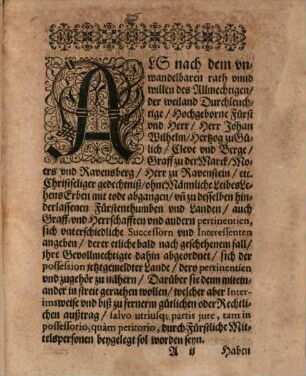 ALS nach dem vn¬
wandelbaren rath vnnd
willen des Allmechtigen/
der weiland Durchleuch¬
tige / Hochgeborne Fürst
vnd Herr / Herr Johan
Wilhelm / Hertzog zu Gü¬
lich / Cleve vnd Berge /
Graff zu der Marck / Mo¬
ers vnd Ravensberg / Herr zu Ravenstein / etc.
Christseliger gedechtniß / ohne Männliche Leibes Le¬
hens Erben mit tode abgangen / vñ zu desselben hin¬
derlassenen Fürstenthumben vnd Landen / auch
Graff: vnd Herrschafften vnd andern pertinentien,
sich vnterschiedliche Successorn vnd Interessenten
angeben / derer etliche bald nach geschehenem fall /
ihre Gevollmechtigte dahin abgeordnet / sich der
possession jetztgemeldter Lande / dero pertinentien
vnd zugehör zu nähern / Darüber sie denn mitein¬
ander in streit gerathen wollen / welcher aber Inter¬
imsweise vnd biß zu fernerm gütlichen oder Rechtli¬
chen außtrag / salvo utriusq; partis jure, tam in
possessorio, quàm petitorio, durch Fürstliche Mit¬
telspersonen beygelegt sol worden seyn.
A ij Haben